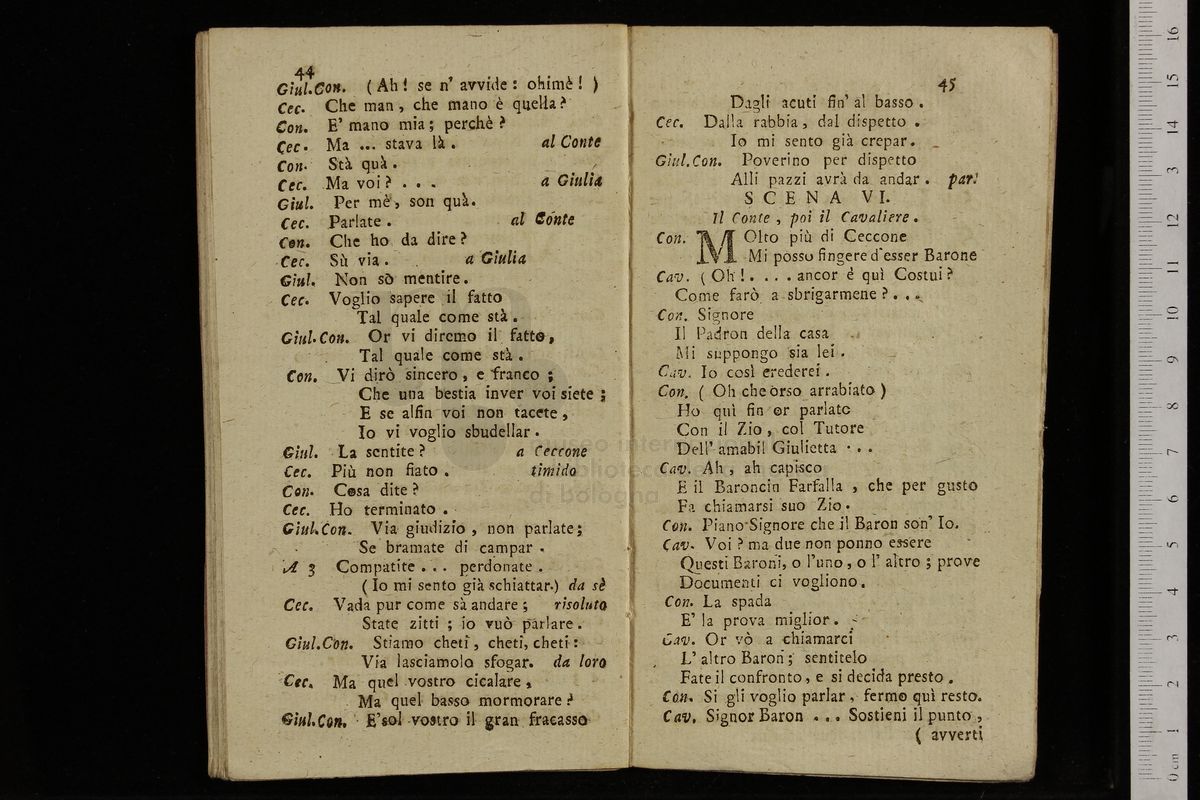 44
Giul.Con. (Ah! se n' avvide: ohimè! )
Cec. Che man, che mano è quella?
Con. E' mano mia; perchè?
Cec. Ma ... stava là. al Conte
Con. Stà quà.
Cec. Ma voi? . . . a Giulia
Giul. Per mè, son quà.
Cec. Parlate. al Conte
Con. Che ho da dire?
Cec. Sù via. a Giulia
Giul. Non sò mentire.
Cec. Voglio sapere il fatto
Tal quale come stà.
Giul.Con. Or vi diremo il fatto,
Tal quale come stà.
Con. Vi dirò sincero, e franco;
Che una bestia inver voi siete;
E se alfin voi non tacete,
Io vi voglio sbudellar.
Giul. La sentite? a Ceccone
Cec. Più non fiato. timido
Con. Cosa dite?
Cec. Ho terminato.
Giul.Con. Via giudizio, non parlate;
Se bramate di campar.
A 3 Compatite... perdonate.
(Io mi sento già schiattar.) da sè
Cec. Vada pur come sà andare; risoluto
State zitti; io vuò parlare.
Giul.Con. Stiamo cheti, cheti, cheti:
Via lasciamolo sfogar. da loro
Cec. Ma quel vostro cicalare,
Ma quel basso mormorare?
Giul.Con. E' sol vostro il gran fracasso
45
Dagli acuti fin' al basso.
Cec. Dalla rabbia, dal dispetto.
Io mi sento già crepar.
Giul.Con. Poverino per dispetto
Alli pazzi avrà da andar. par.
SCENA VI.
Il Conte, poi il Cavaliere.
Con. MOlto più di Ceccone
Mi posso fingere d'esser Barone
Cav. (Oh!.... ancor è quì Costui?
Come farò a sbrigarmene?...
Con. Signore
Il Padron della casa
Mi suppongo sia lei.
Cav. Io così crederei.
Con. ( Oh che orso arrabiato )
Ho quì fin or parlato
Con il Zio, col Tutore
Dell' amabil Giulietta ...
Cav. Ah, ah capisco
E il Baroncin Farfalla, che per gusto
Fa chiamarsi suo Zio.
Con. Piano Signore che il Baron son' Io.
Cav. Voi? ma due non ponno essere
Questi Baroni, o l'uno, o l' altro; prove
Documenti ci vogliono.
Con. La spada
E' la prova miglior.
Cav. Or vò a chiamarci
L' altro Baron; sentitelo
Fate il confronto, e si decida presto.
Con. Si gli voglio parlar, fermo quì resto.
Cav. Signor Baron ... Sostieni il punto,
( avverti
museo internazionale
biblioteca
di bologna
0 cm 1 2 3 4 5 6 7 8 9 10 11 12 13 14 15 16